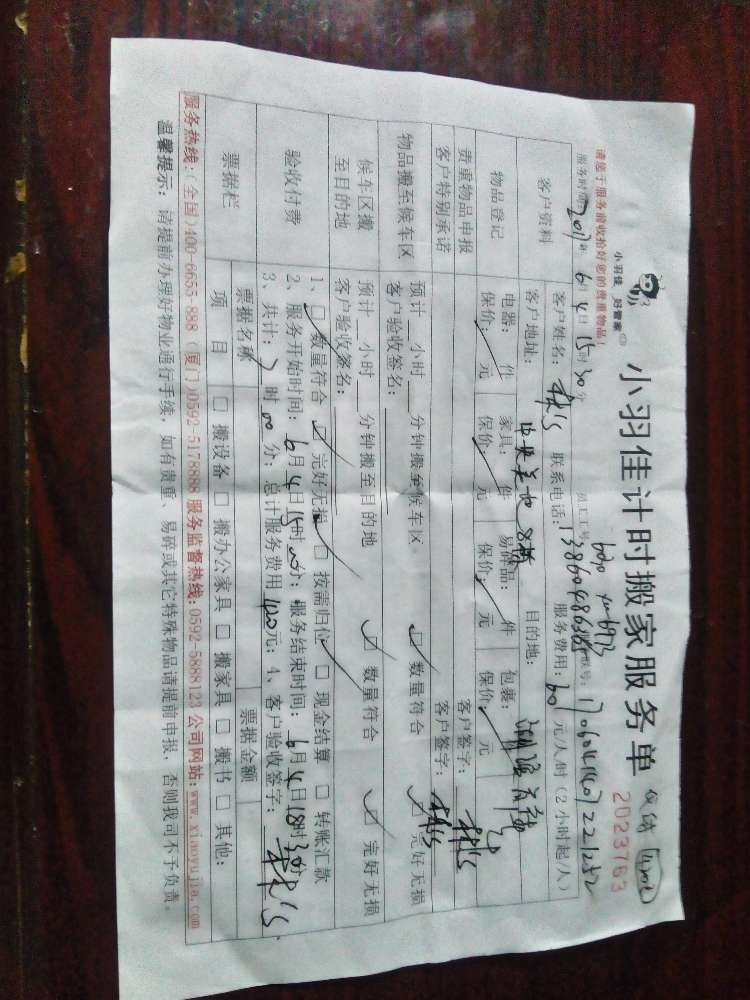 小羽佳 好管家
小羽佳计时搬家服务单
2023763
请您于服务前收拾好您的贵重物品！
服务时间：2017年6月4日15时30分 员工工号：
客户资料
客户姓名： 联系电话：13860486385 服务费用：60元/人/时（2小时起/人）
客户地址： 目的地：
物品登记
电器： 件 家具： 件 易碎品： 件 包裹： 件
保价： 元 保价： 元 保价： 元 保价： 元
贵重物品申报 客户签字：
客户特别承诺 客户签字：
物品搬至候车区
预计 小时 分钟搬至候车区。 数量符合 完好无损
客户验收签名：
候车区搬至目的地
预计 小时 分钟搬至目的地 数量符合 完好无损
客户验收签名：
验收付费
1、□数量符合 □完好无损 □按需归位 □现金结算 □转账汇款
2、服务开始时间：6月4日15时00分；服务结束时间：6月4日18时30分
3、共计：7时00分；总计服务费用420元；4、客户验收签字：
票据栏
票据名称 票据金额
项目 □搬设备 □搬办公家具 □搬家具 □搬书 □其他：
服务热线：（全国）400-6655-888（厦门）0592-5178888 服务监督热线：0592-5888123 公司网站：www.xiaoyujia.com
温馨提示：请提前办理好物业通行手续，如有贵重、易碎或其它特殊物品请提前申报，否则我司不予负责。